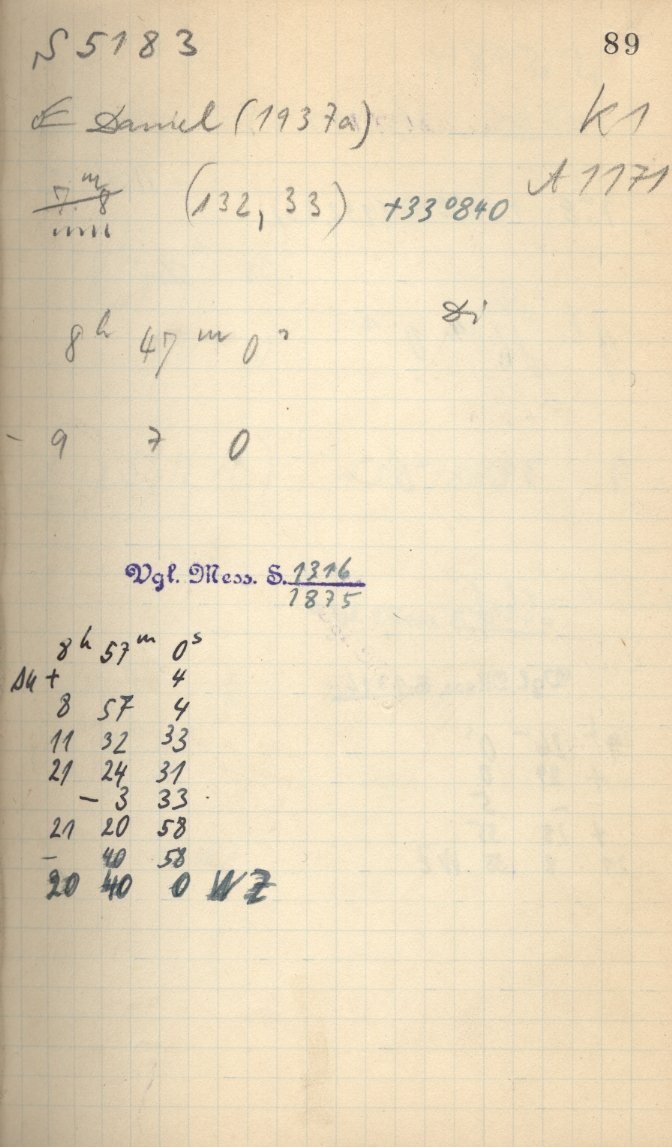 S 5183
89
E Daniel (1937a)
K1
7.ᵐ8 (132, 33) +33°840
A 1171
Di
8ʰ 47ᵐ 0ˢ
- 9 7 0
Vgl. Mess. S. 1316
1875
8ʰ 57ᵐ 0ˢ
Δu + 4
8 57 4
11 32 33
21 24 31
- 3 33
21 20 58
- 40 58
20 40 0 WZ